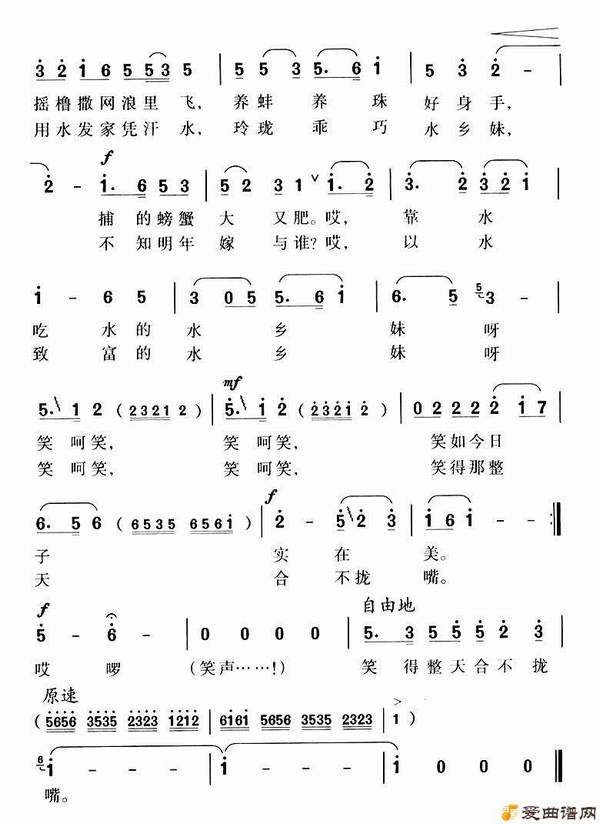 3 2 1 6 5 5 5 3 5 | 5 5 3 5. 6 1 | 5 3 2 - |
摇橹撒网浪里飞, 养蚌 养 珠 好身手,
用水发家凭汗水, 玲珑 乖 巧 水乡妹,
f
2 - 1. 6 5 3 | 5 2 3 1 ∨ 1. 2 | 3. 3 2 1 |
捕的螃蟹 大 又肥。哎, 靠 水
不知明年 嫁 与谁? 哎, 以 水
1 - 6 5 | 3 0 5 5. 6 1 | 6. 5 5 3 - |
吃 水的 水 乡 妹 呀
致 富的 水 乡 妹 呀
mf
5. \ 1 2 ( 2 3 2 1 2 ) | 5. \ 1 2 ( 2 3 2 1 2 ) | 0 2 2 2 2 2 1 7 |
笑 呵笑, 笑 呵笑, 笑如今日
笑 呵笑, 笑 呵笑, 笑得那整
f
6. 5 6 ( 6 5 3 5 6 5 6 1 ) | 2 - 5 \ 2 3 | 1 6 1 - :||
子 实 在 美。
天 合 不拢 嘴。
f 自由地
5 - 6 - | 0 0 0 0 | 5. 3 5 5 5 2 3 |
哎 啰 (笑声……!) 笑 得整天合不拢
原速
( 5656 3535 2323 1212 | 6161 5656 3535 2323 | 1 )
6 1 - - - | 1 - - - | 1 0 0 0 ||
嘴。
爱曲谱网